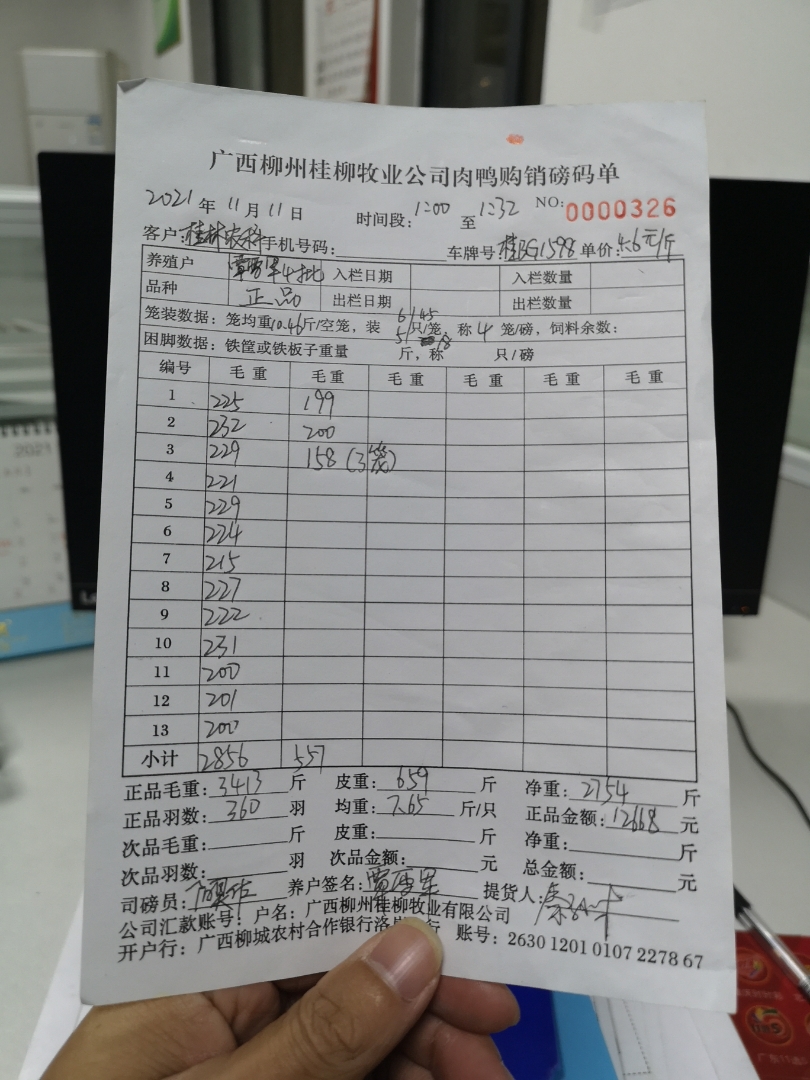 广西柳州桂柳牧业公司肉鸭购销磅码单
2021 年 11 月 11 日 时间段: 1:00 至 1:32 NO: 0000326
客户: 桂林农科 手机号码: 车牌号 单价: 4.6元/斤
养殖户 4批 入栏日期 入栏数量
品种 正品 出栏日期 出栏数量
笼装数据: 笼均重10.46斤/空笼, 装 6/45 5/18 只/笼, 称 4 笼/磅, 饲料余数:
困脚数据: 铁筐或铁板子重量 斤, 称 只/磅
编号 毛重 毛重 毛重 毛重 毛重 毛重
1 225 199
2 232 200
3 229 158 (3笼)
4 221
5 229
6 224
7 215
8 227
9 222
10 231
11 200
12 201
13 200
小计 2856 557
正品毛重: 3413 斤 皮重: 659 斤 净重: 2754 斤
正品羽数: 360 羽 均重: 7.65 斤/只 正品金额: 12668 元
次品毛重: 斤 皮重: 斤 净重: 斤
次品羽数: 羽 次品金额: 元 总金额: 元
司磅员: 养户签名: 提货人:
公司汇款账号: 户名: 广西柳州桂柳牧业有限公司
开户行: 广西柳城农村合作银行洛 行 账号: 2630 1201 0107 2278 67
2021